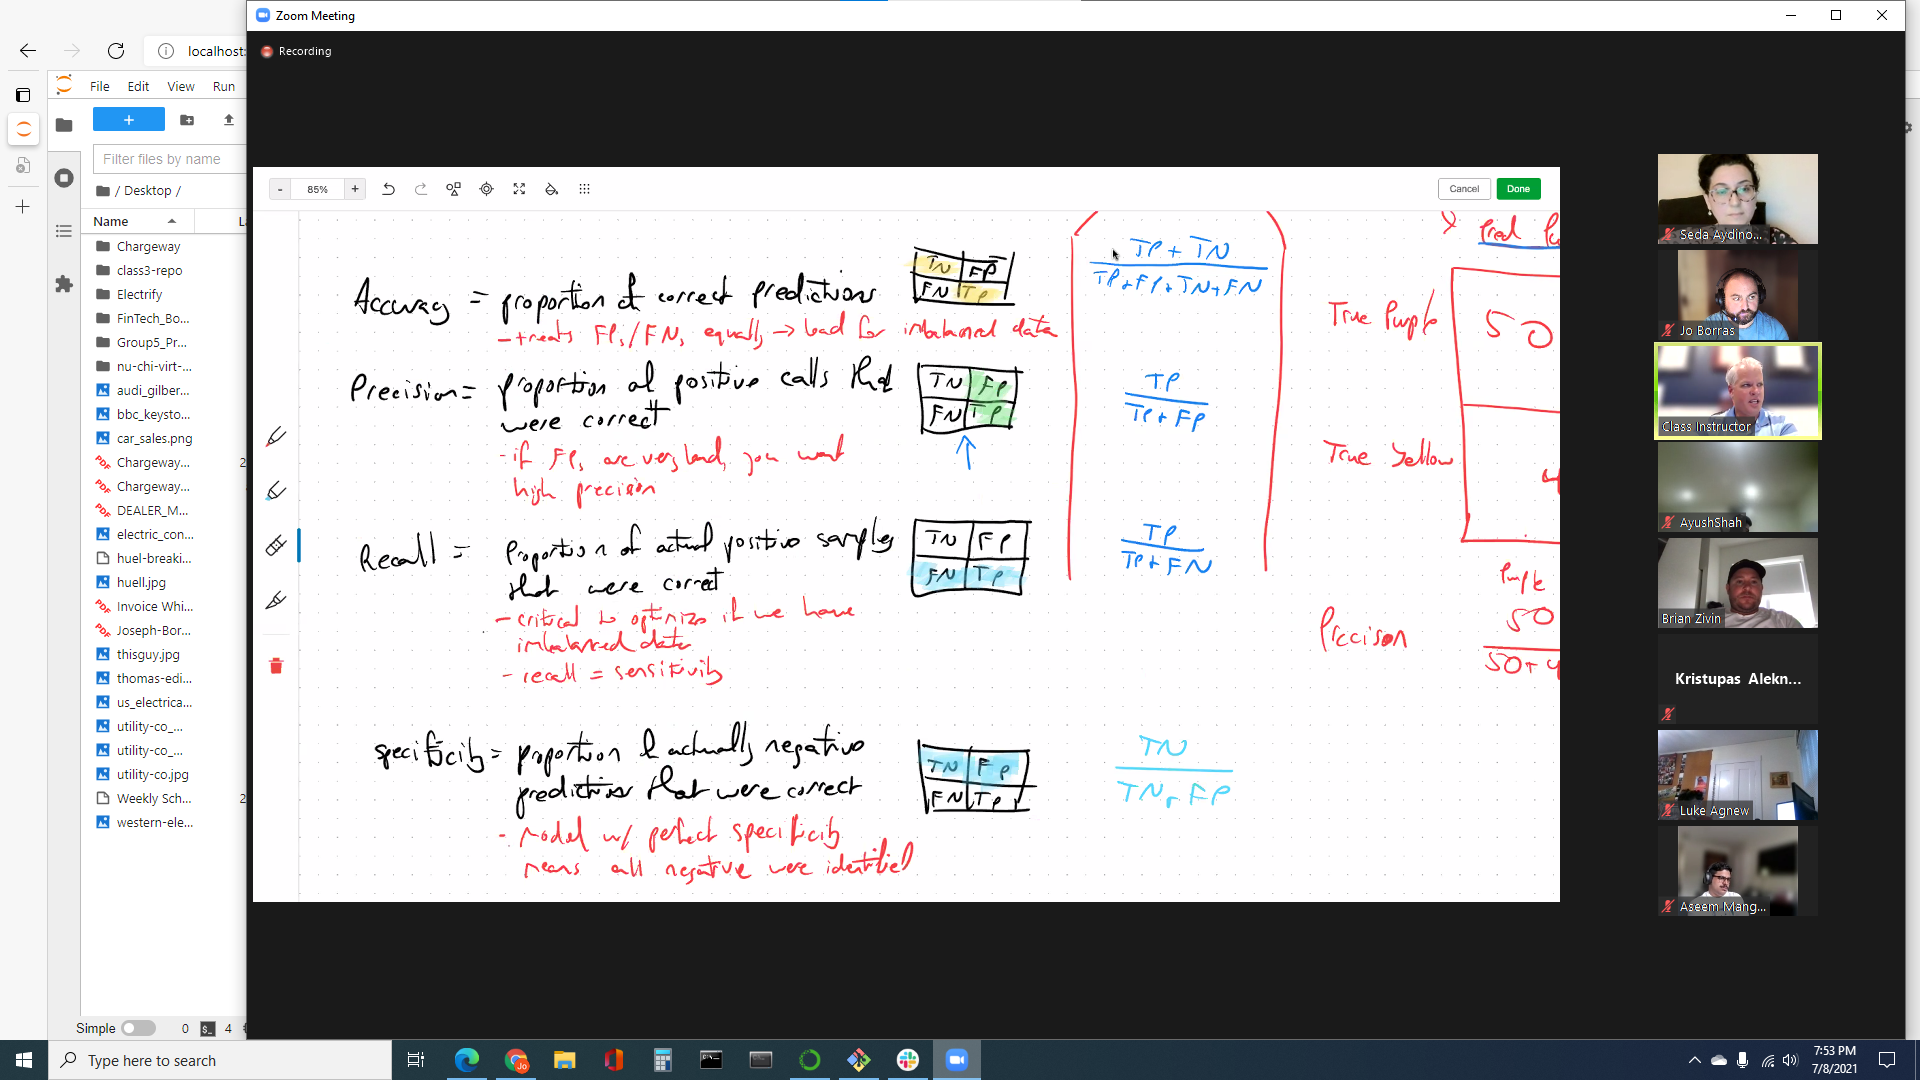 Zoom Meeting
Recording
localhost:
File Edit View Run
Filter files by name
/ Desktop /
Name
Chargeway
class3-repo
Electrify
FinTech_Bo...
Group5_Pr...
nu-chi-virt-...
audi_gilber...
bbc_keysto...
car_sales.png
Chargeway... 2
Chargeway...
DEALER_M...
electric_con...
huel-breaki...
huell.jpg
Invoice Whi...
Joseph-Bor...
thisguy.jpg
thomas-edi...
us_electrica...
utility-co_...
utility-co_...
utility-co.jpg
Weekly Sch... 2
western-ele...
Simple 0 4
- 85% +
Cancel Done
Accuracy = proportion of correct predictions
TN FP
FN TP
TP + TN
TP+FP+TN+FN
- treats FPs/FNs equally → bad for imbalanced data
Precision = proportion of positive calls that
were correct
TN FP
FN TP
TP
TP + FP
- if FPs are very bad, you want
high precision
Recall = Proportion of actual positive samples
that were correct
TN FP
FN TP
TP
TP + FN
- critical to optimize if we have
imbalanced data
- recall = sensitivity
specificity = proportion of actually negative
predictions that were correct
TN FP
FN TP
TN
TN + FP
- model w/ perfect specificity
means all negative were identified
Pred
True Purple
50
True Yellow
Purple
Precison
50
50+4
Seda Aydino...
Jo Borras
Class Instructor
AyushShah
Brian Zivin
Kristupas Alekn...
Luke Agnew
Aseem Mang...
Type here to search
7:53 PM
7/8/2021